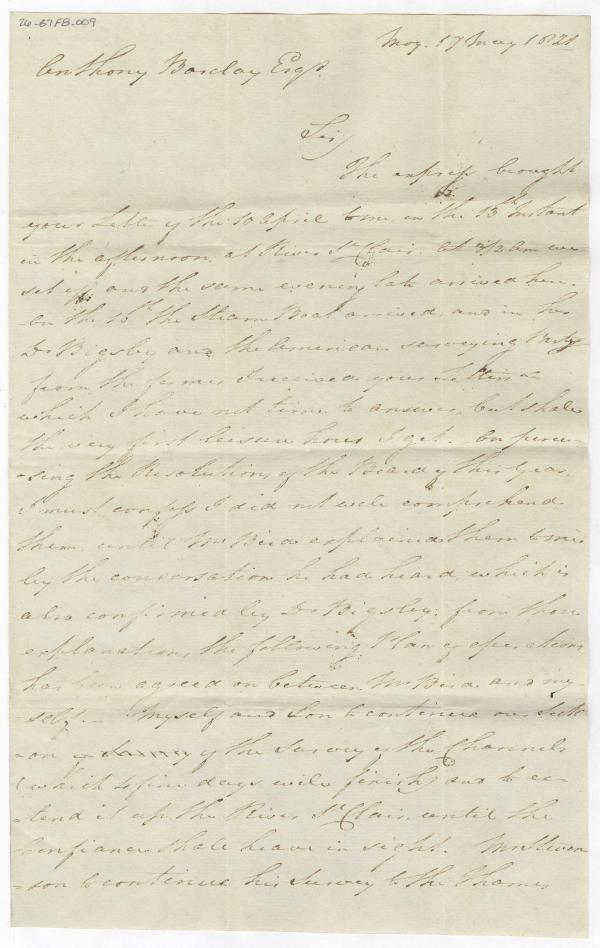 26-B7FB-009
Moy. 17 May 1821
Anthony Barclay Esqr.
Sir
The express brought
your Letter of the 10 April to me, in the 13th Instant
in the afternoon, at River St Clair. At we
set off and the same evening late arrived here.
On the 16th the Steam Boat arrived, and in her
Dr Bigsby and the American surveying Party
from the former I received your Letters
which I have not time to answer, but shall
the very first leisure hours I get. On peru-
-sing the Resolutions of the Board of this Year.
I must confess I did not well comprehend
them, until Mr Bird explained them to me
by the conversation he had heard, which is
also confirmed by Dr Bigsby. from those
explanations the following Plan of operations
has been agreed on between Mr Bird and my-
-self. - Myself and Son to continue our Secti
-on of the Survey of the Channels
(which 4 five days will finish) and to ex-
-tend it up the River St Clair, until the
Confiance shall heave in sight. Mr Steven
-son to continue his Survey to the Thames